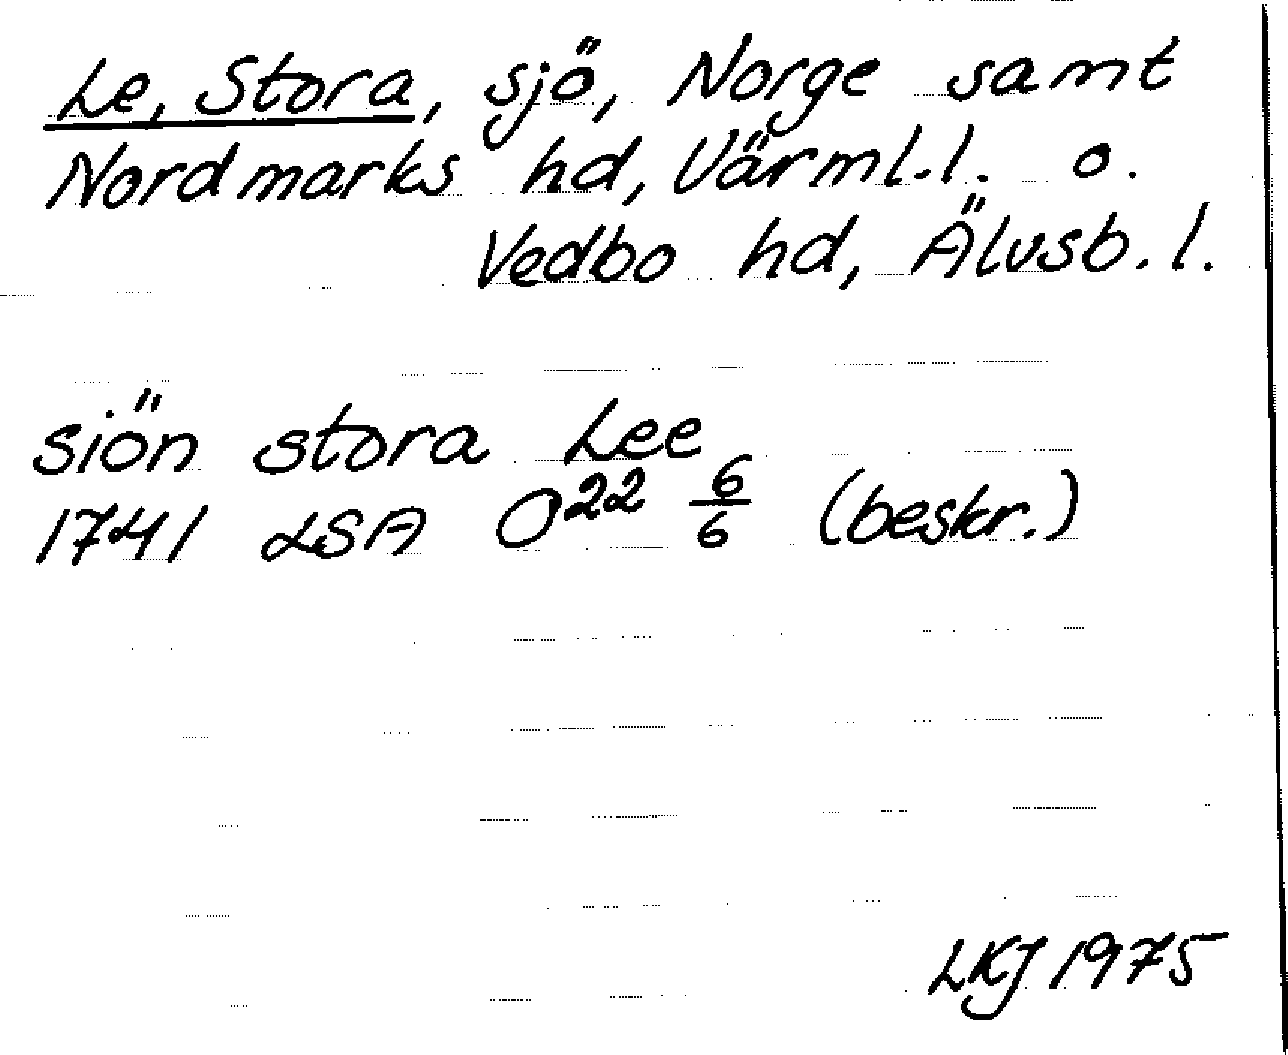 Le, Stora, sjö, Norge samt
Nordmarks hd, Värml.l. o.
Vedbo hd, Älvsb.l.
siön stora Lee
1741 LSA O²² 6/6 (beskr.)
LKJ 1975